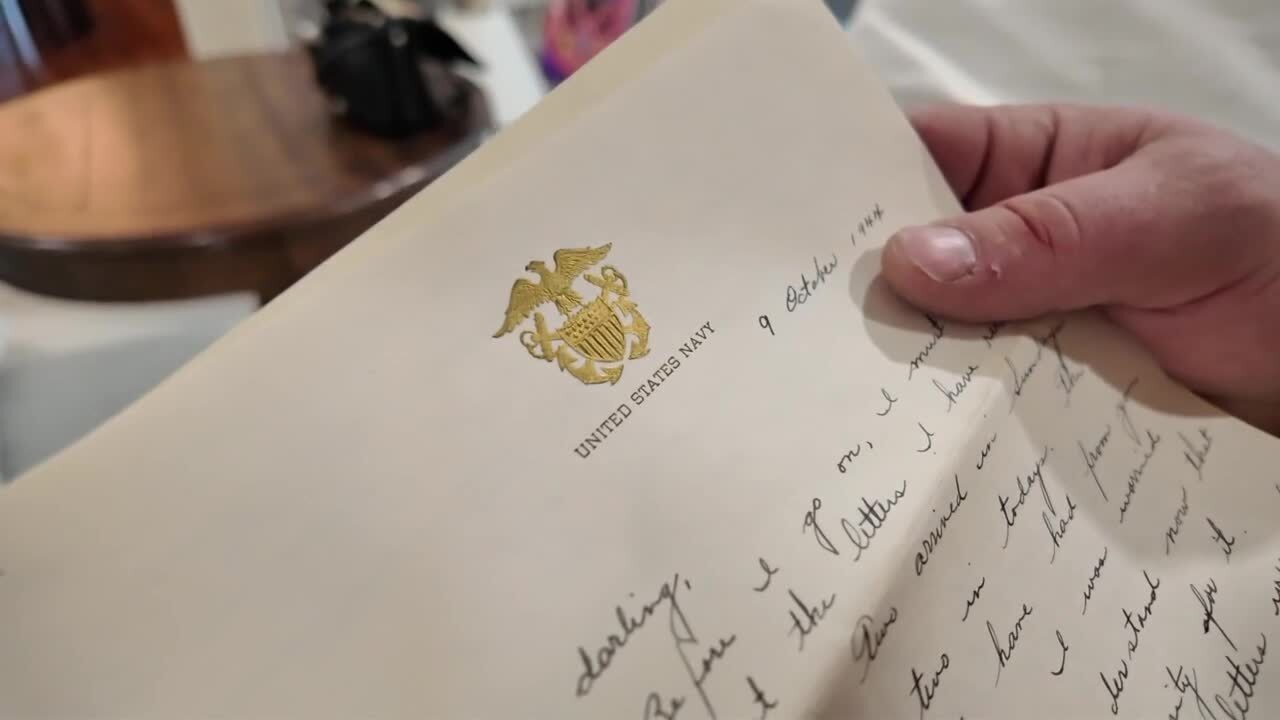 UNITED STATES NAVY
9 October 1944
darling,
Before I go on, I must
the letters I have
Two arrived in Sunday
two in today. the
have had from
I was worried
derstand now that
for it.
letters